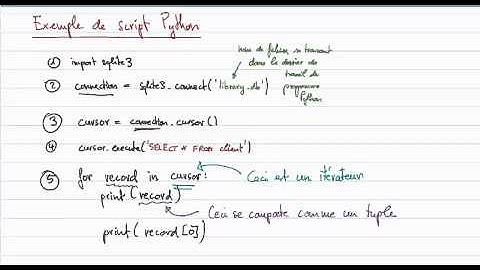 Exemple de script Python
① import sqlite3
② connection = sqlite3.connect('library.db')
nom de fichier se trouvant
dans le dossier de
travail du
programme
Python
③ cursor = connection.cursor()
④ cursor.execute('SELECT * FROM client')
⑤ for record in cursor:
Ceci est un itérateur
print(record)
Ceci se comporte comme un tuple
print(record[0])